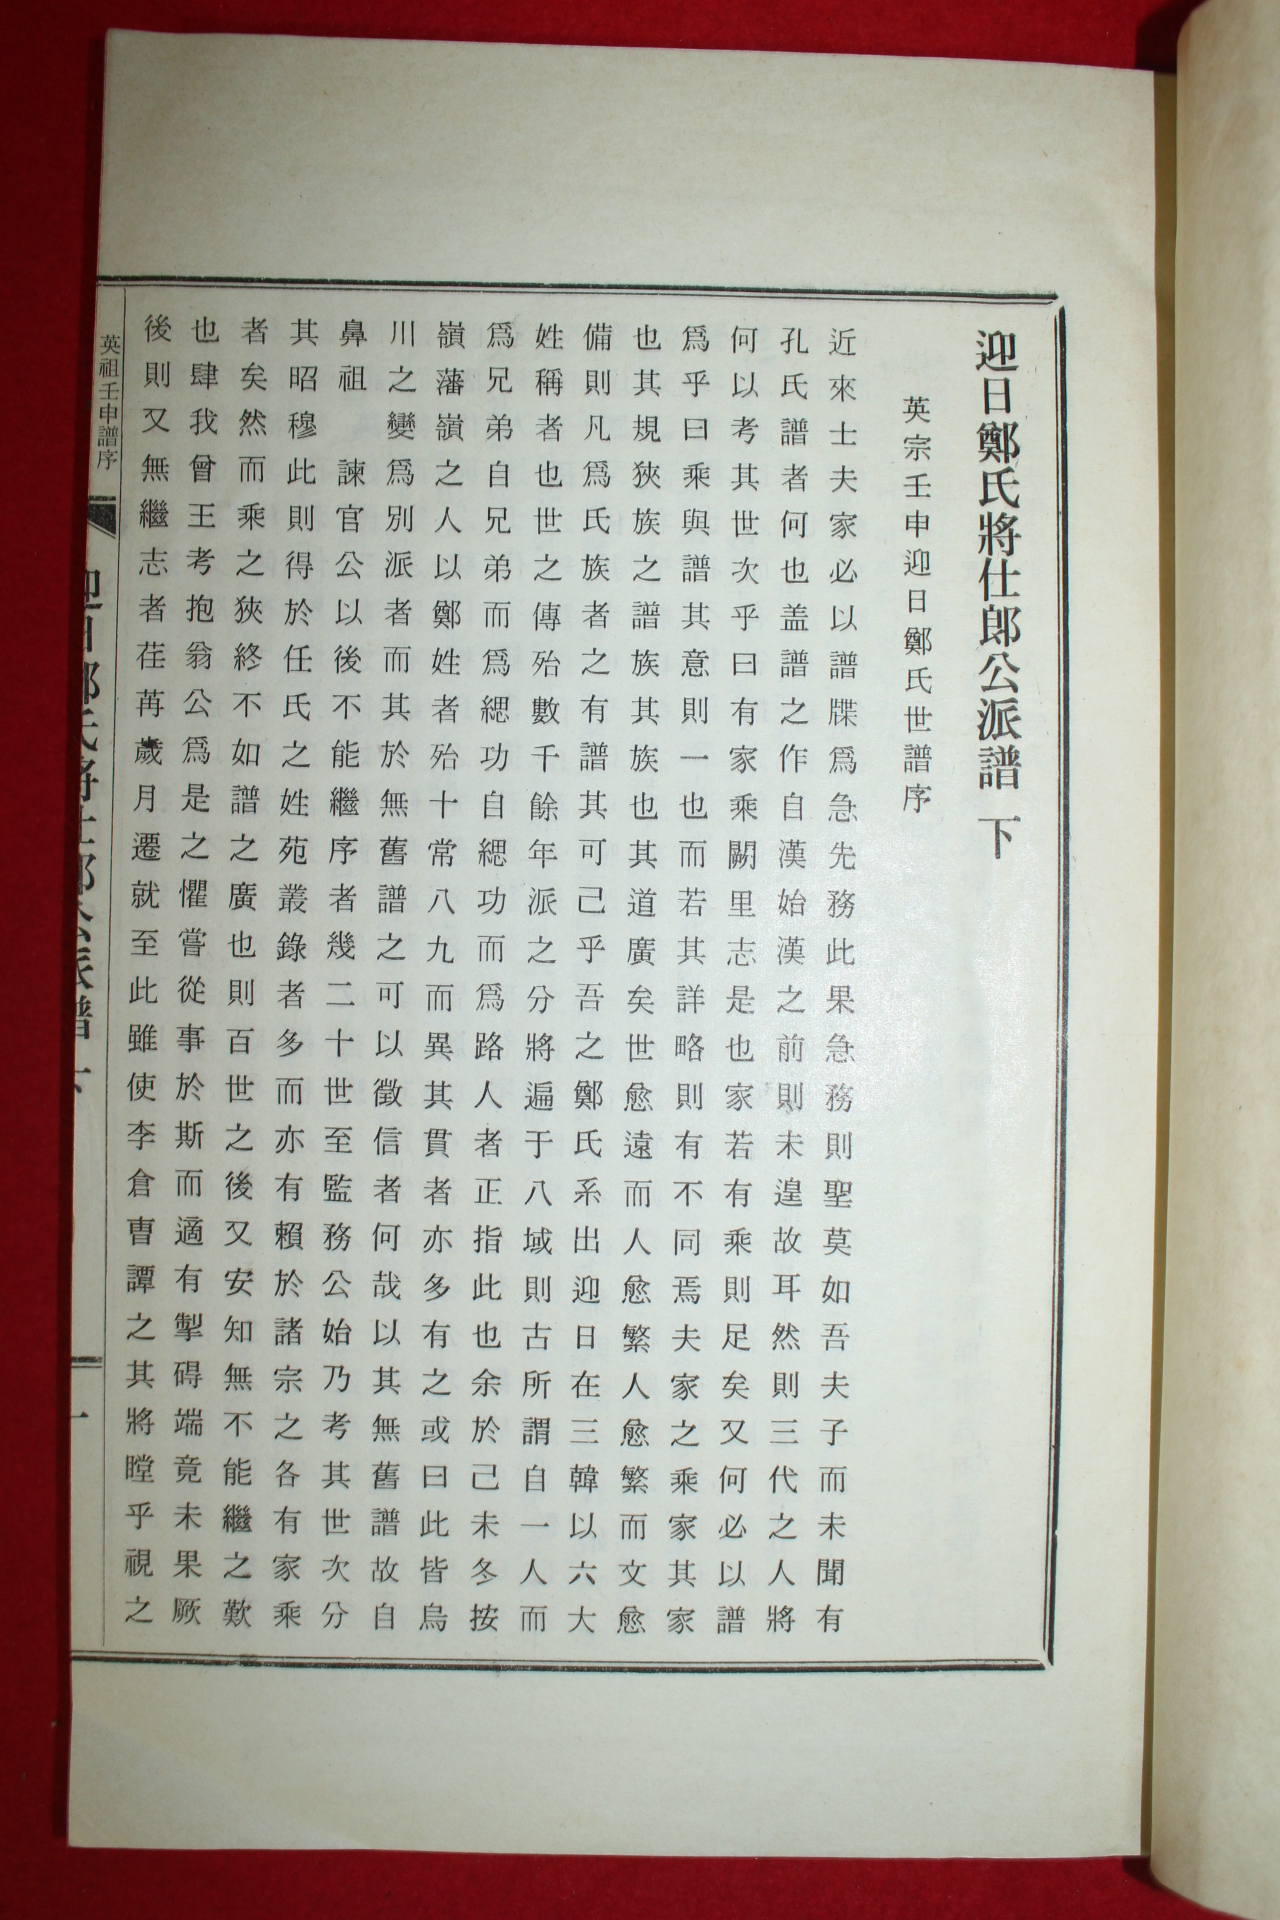 迎日鄭氏將仕郎公派譜 下
英宗壬申迎日鄭氏世譜序
近來士夫家必以譜牒爲急先務此果急務則聖莫如吾夫子而未聞有
孔氏譜者何也盖譜之作自漢始漢之前則未遑故耳然則三代之人將
何以考其世次乎曰有家乘闕里志是也家若有乘則足矣又何必以譜
爲乎曰乘與譜其意則一也而若其詳略則有不同焉夫家之乘家其家
也其規狹族之譜族其族也其道廣矣世愈遠而人愈繁人愈繁而文愈
備則凡爲氏族者之有譜其可己乎吾之鄭氏系出迎日在三韓以六大
姓稱者也世之傳殆數千餘年派之分將遍于八域則古所謂自一人而
爲兄弟自兄弟而爲緦功自緦功而爲路人者正指此也余於己未冬按
嶺藩嶺之人以鄭姓者殆十常八九而異其貫者亦多有之或曰此皆烏
川之變爲別派者而其於無舊譜之可以徵信者何哉以其無舊譜故自
鼻祖 諫官公以後不能繼序者幾二十世至監務公始乃考其世次分
其昭穆此則得於任氏之姓苑叢錄者多而亦有賴於諸宗之各有家乘
者矣然而乘之狹終不如譜之廣也則百世之後又安知無不能繼之歎
也肆我曾王考抱翁公爲是之懼嘗從事於斯而適有掣碍端竟未果厥
後則又無繼志者荏苒歲月遷就至此雖使李倉曺譚之其將瞠乎視之
英祖壬申譜序
迎日鄭氏將仕郎公派譜 下
一